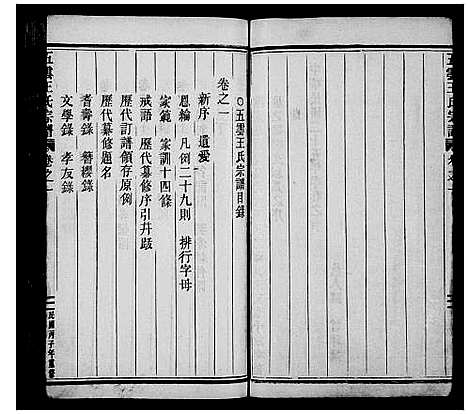 五雲王氏宗譜 卷之一
○五雲王氏宗譜目錄
卷之一
新序 遺愛
恩綸 凡例二十九則 排行字母
家範 家訓十四條
戒語 歷代纂修序引幷跋
歷代訂譜領存原例
歷代纂修題名
耆壽錄 簪纓錄
文學錄 孝友錄
五雲王氏宗譜 卷之一
民國丙子年重修